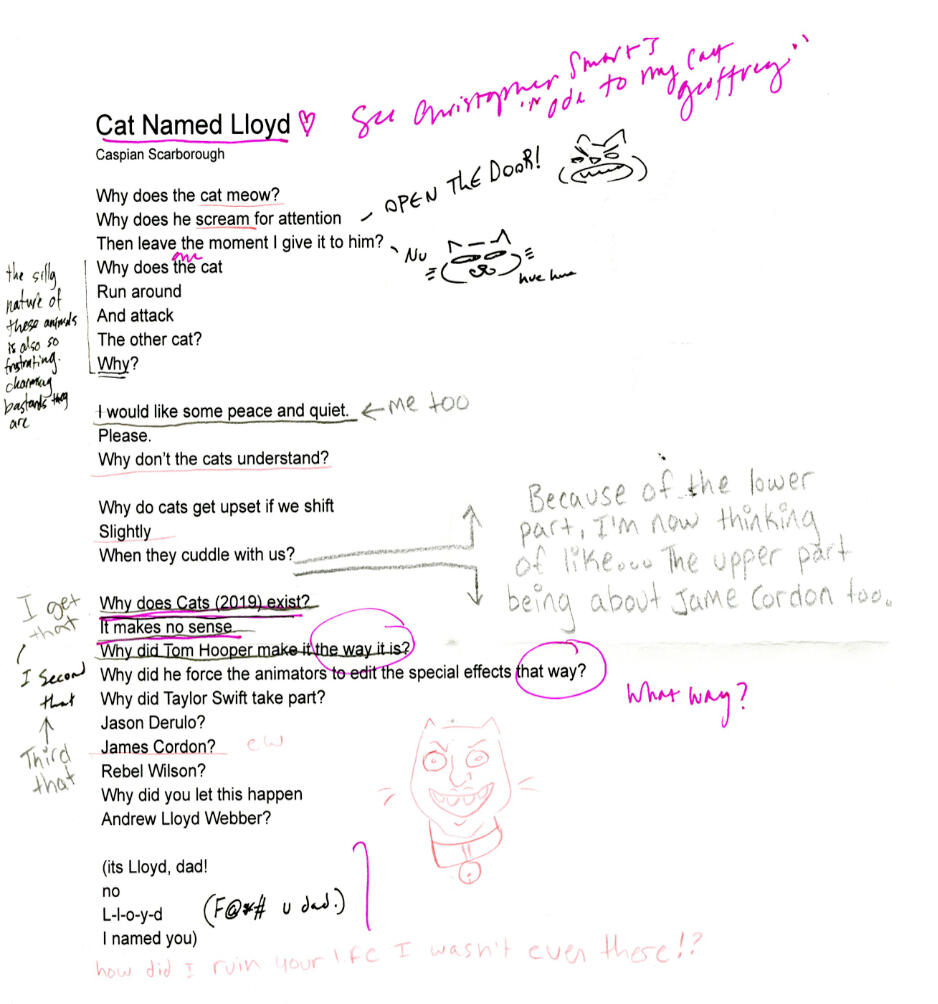 See Christopher Smart's
"ode to my cat
geoffrey"
Cat Named Lloyd
Caspian Scarborough
Why does the cat meow?
Why does he scream for attention
OPEN THE DOOR!
Then leave the moment I give it to him?
Nu
hue hue
one
Why does the cat
Run around
And attack
The other cat?
Why?
the silly
nature of
these animals
is also so
frustrating.
charming
bastards they
are
I would like some peace and quiet.
me too
Please.
Why don't the cats understand?
Why do cats get upset if we shift
Slightly
When they cuddle with us?
Because of the lower
part, I'm now thinking
of like... The upper part
being about Jame Cordon too.
Why does Cats (2019) exist?
It makes no sense.
Why did Tom Hooper make it the way it is?
Why did he force the animators to edit the special effects that way?
What way?
Why did Taylor Swift take part?
Jason Derulo?
James Cordon?
ew
Rebel Wilson?
Why did you let this happen
Andrew Lloyd Webber?
I get
that
I second
that
Third
that
(its Lloyd, dad!
no
L-l-o-y-d
(F@*# u dad.)
I named you)
how did I ruin your life I wasn't even there!?